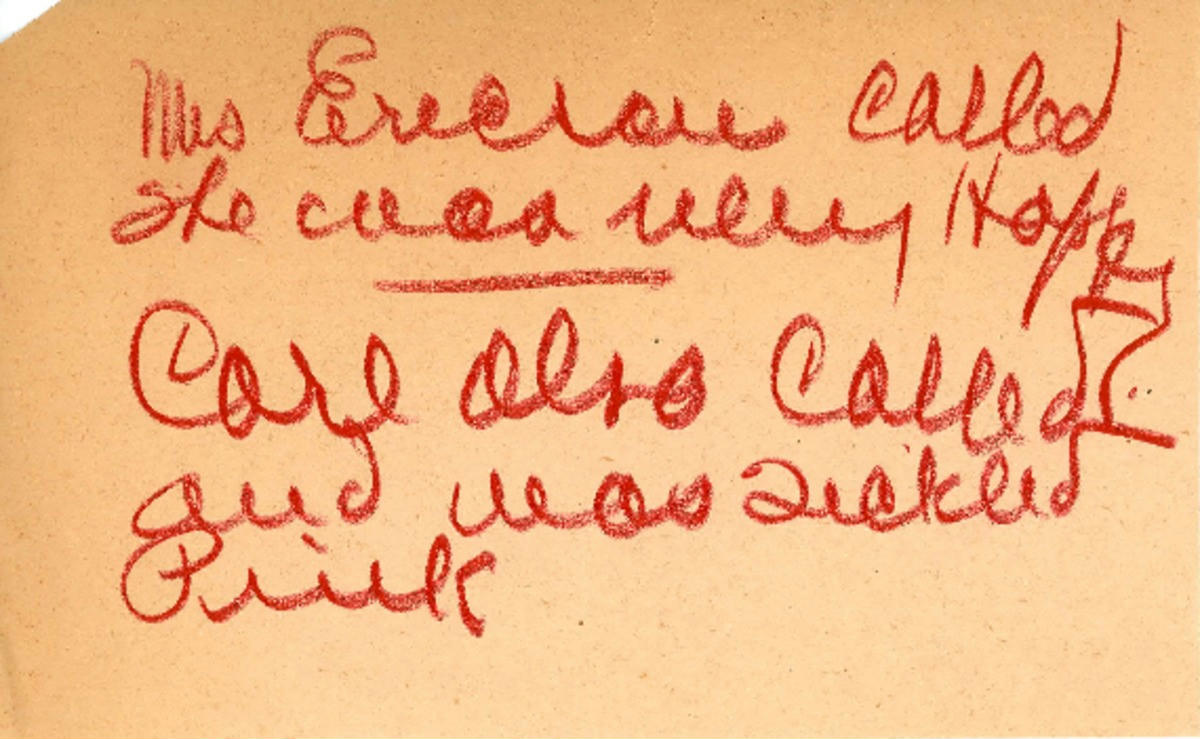 Mrs Ericson called
she was very Happy
Carl also Called
and was Tickled
Pink